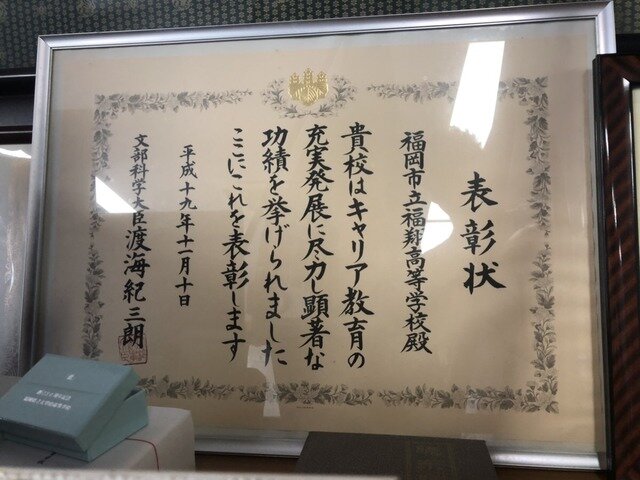 表彰状
福岡市立福翔高等学校殿
貴校はキャリア教育の
充実発展に尽力し顕著な
功績を挙げられました
ここにこれを表彰します
平成十九年十一月十日
文部科学大臣 渡海紀三朗